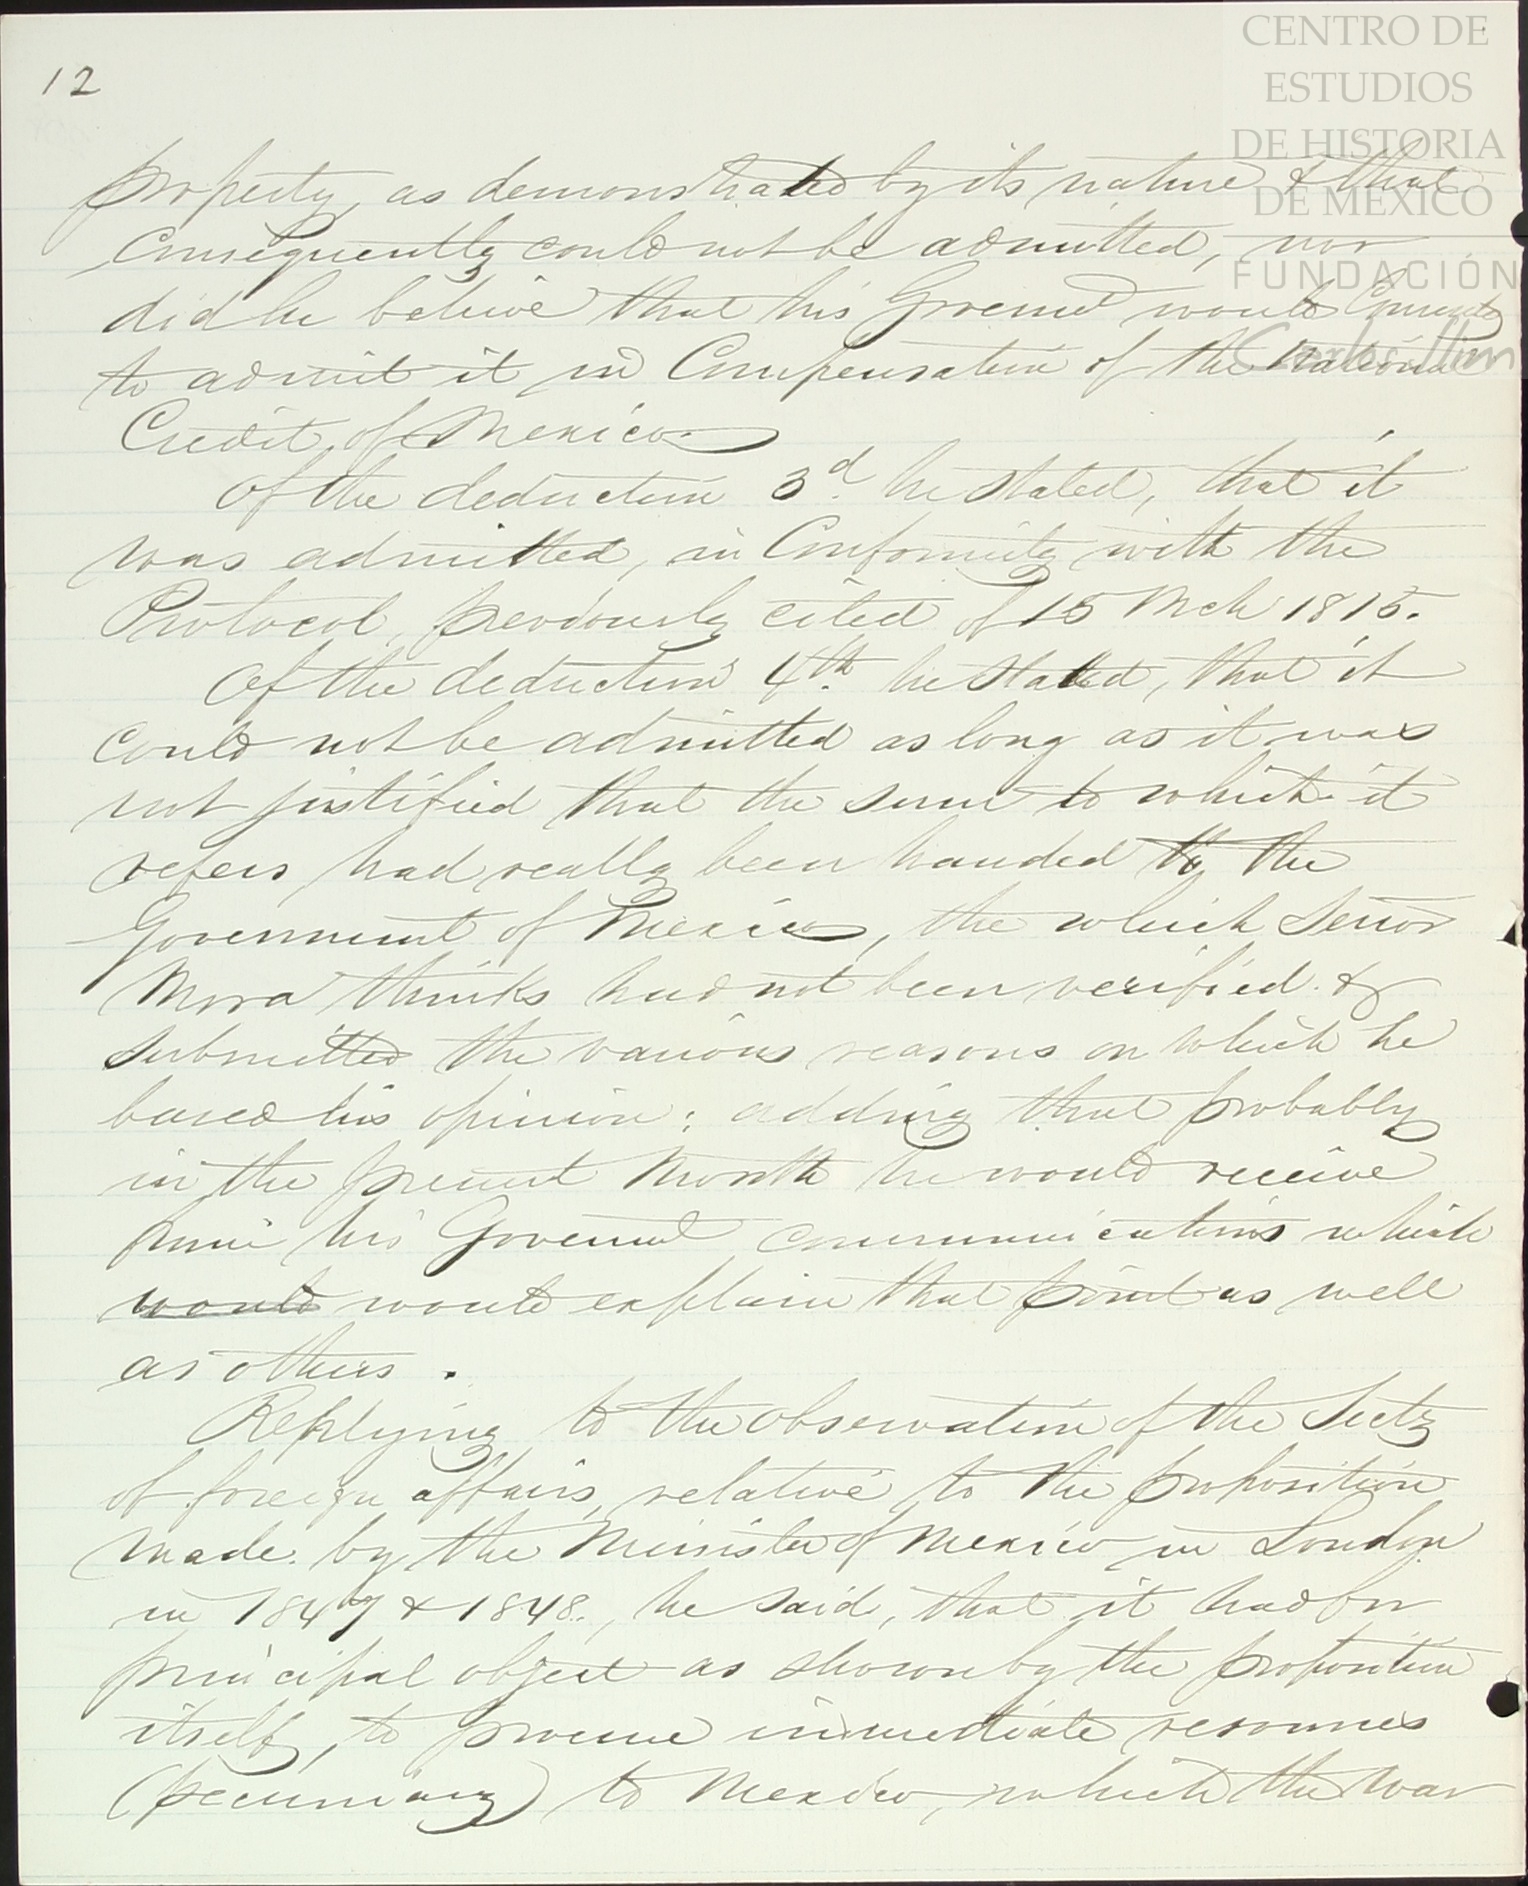 CENTRO DE
ESTUDIOS
DE HISTORIA
DE MÉXICO
FUNDACIÓN
Carlos Slim
12
property, as demonstrated by its nature & that
Consequently could not be admitted, nor
did he believe that his Governmt would
to admit it in Compensation of the national
Credit of Mexico.
Of the deduction 3d. he stated, that it
was admitted, in Conformity with the
Protocol, previously cited of 15 Mch 1815.
Of the deduction 4th. he stated, that it
could not be admitted as long as it was
not justified that the sum to which it
refers had really been handed to the
Government of Mexico, the which Senor
Mora thinks had not been verified. &
submitted the various reasons on which he
based his opinion; adding that probably
in the present Month he would receive
from his Governmt communications which
would would explain that point as well
as others.
Replying to the observation of the Secty
of foreign affairs, relative to the proposition
made by the Minister of Mexico in London
in 1847 & 1848, he said, that it had for
principal object as shown by the proposition
itself, to procure immediate resources
(pecuniary) to Mexico, which the war